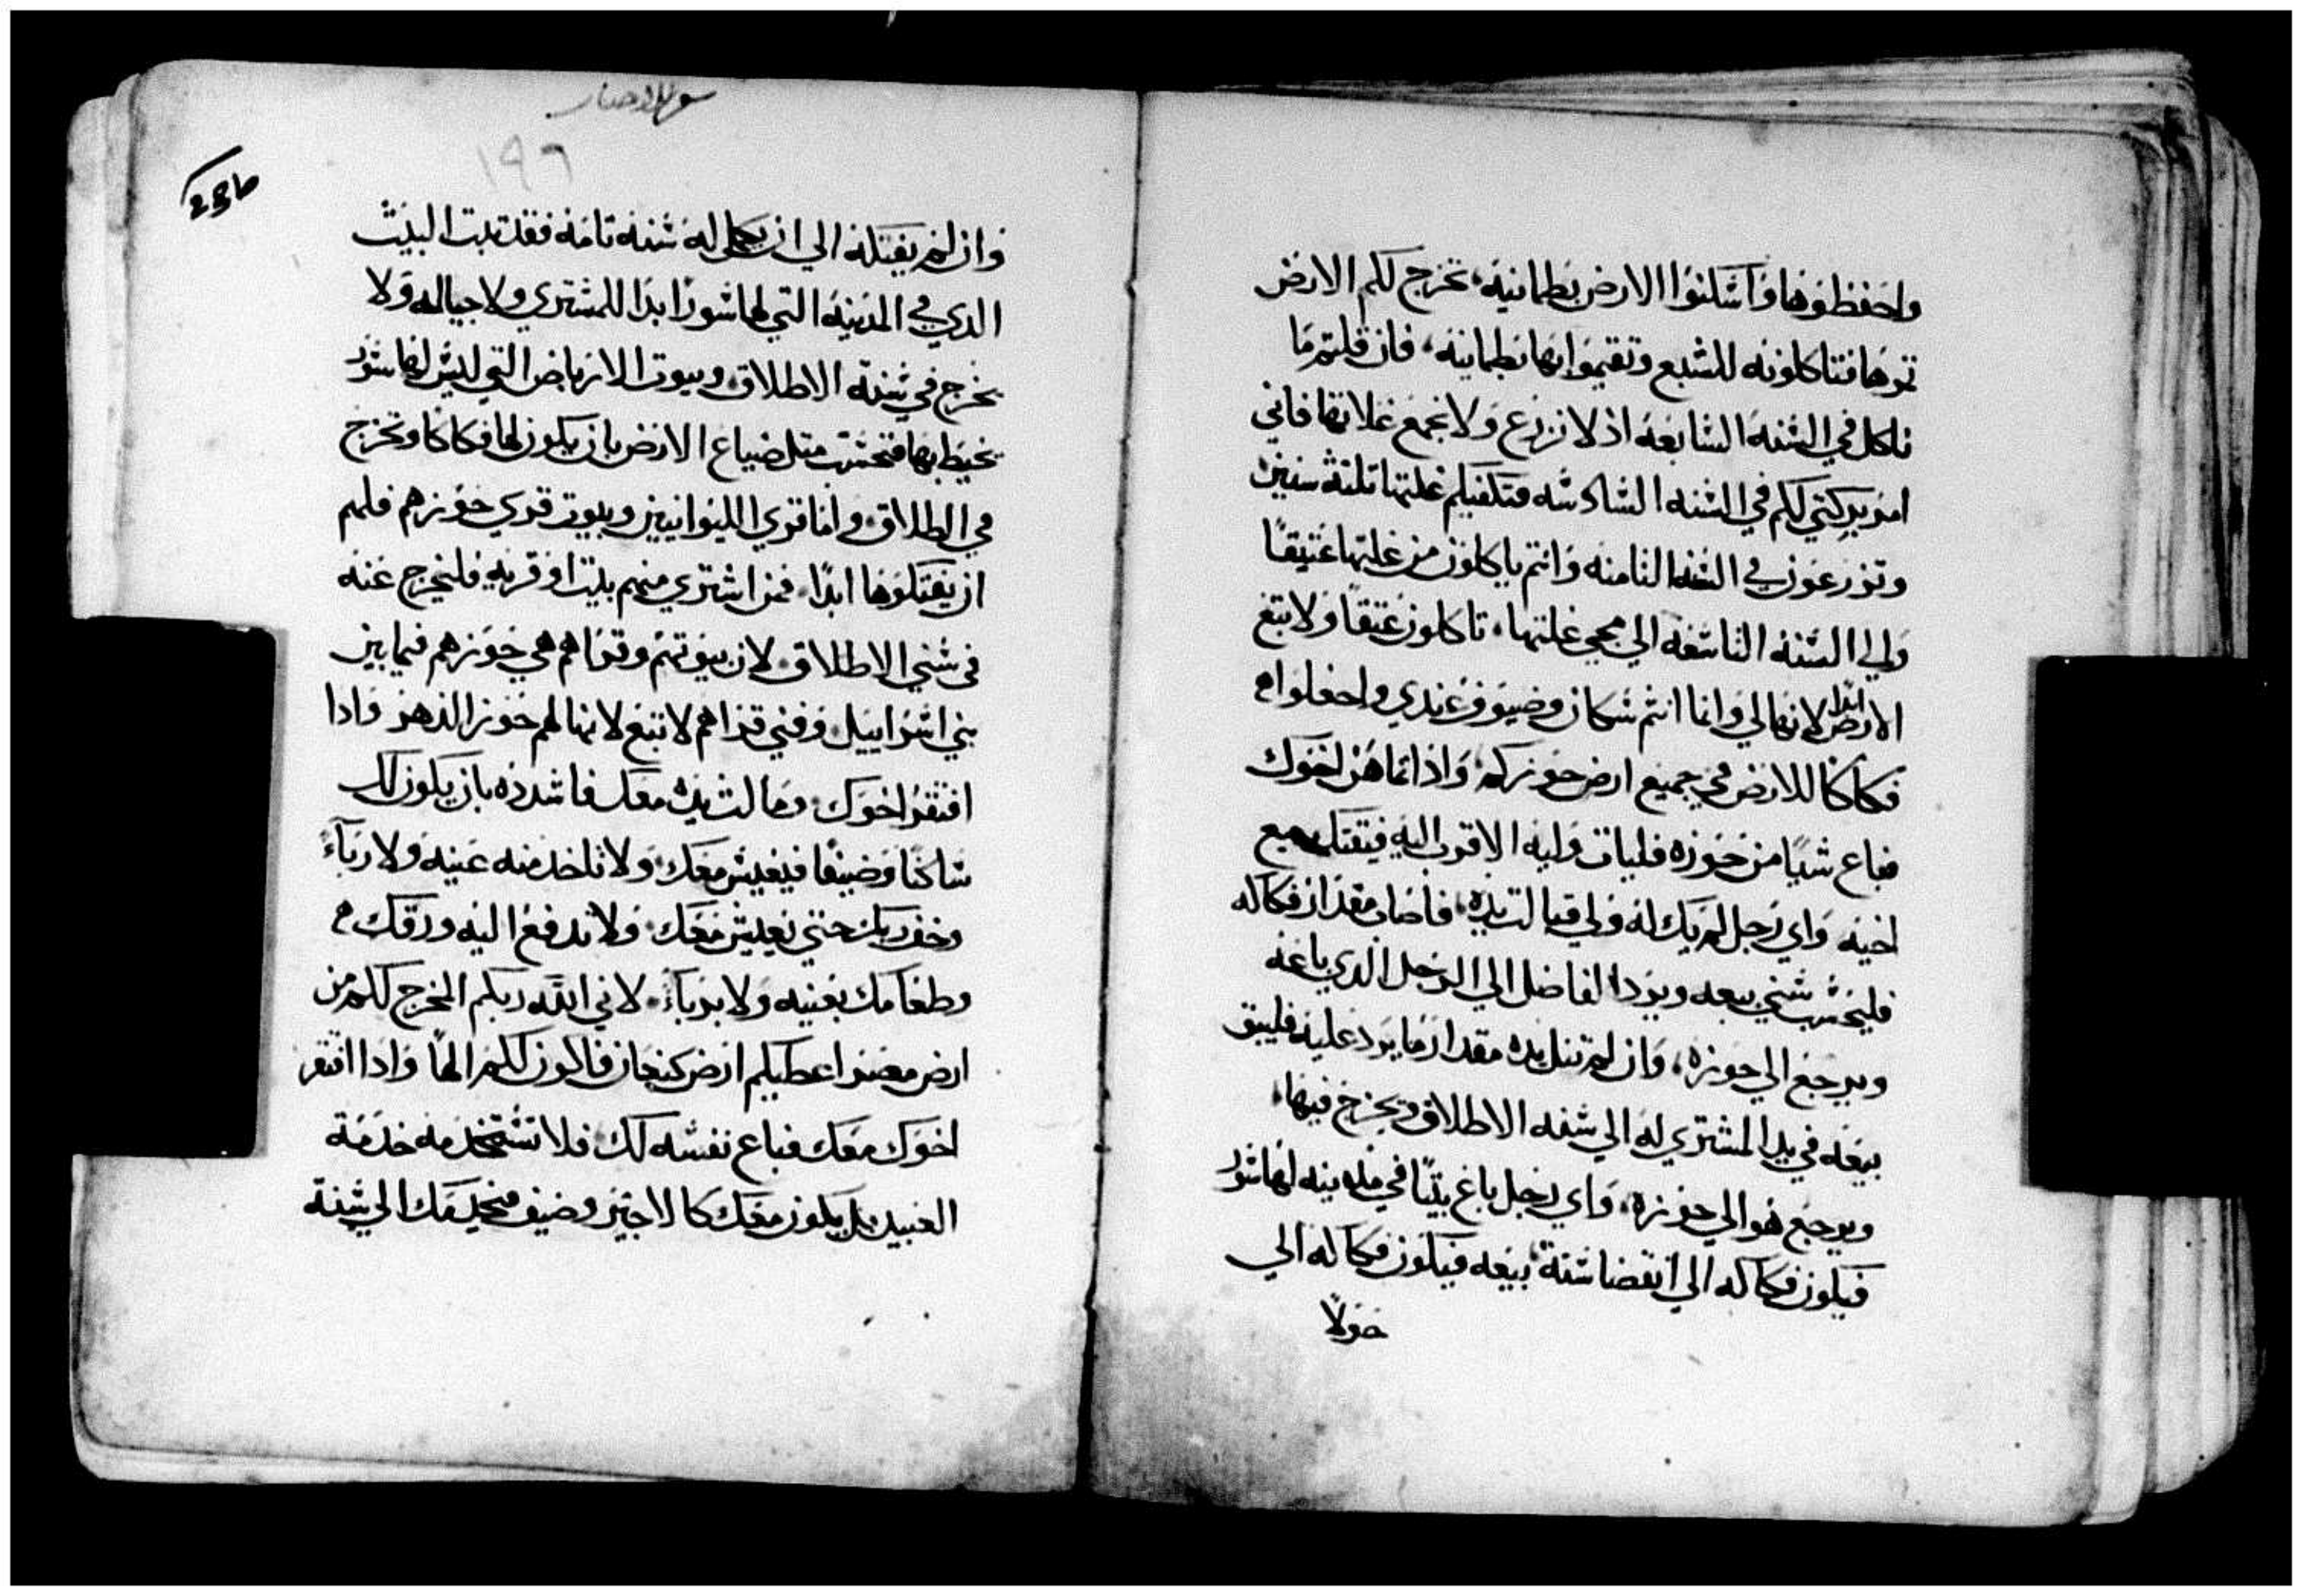 واحفظوها واسكنوا الارض بطمانينه، تخرج لكم الارض
ثمرها فتاكلونه للشبع وتقيموا بها بطمانينه، فان قلتم ما
ناكل في السنه السابعه اذ لا نزرع ولا نجمع غلاتها فاني
امر بركتي لكم في السنه السادسه فتكفيكم غلتها تلته سنين
وتزرعون في السنه التامنه وانتم تاكلون من غلتها عتيقا
والي السنه التاسعه الي مجي غلتها، تاكلون عتقا ولا تبع
الارض ابدا لانها لي وانما انتم سكان وضيوف عندي واجعلوا
فكاكا للارض في جميع ارض حوزكم، واذا تماهن اخوك
فباع شيا من حوزه فليات وليه الاقرب اليه فيفتك مبيع
اخيه واي رجل لم يك له ولي فنالت يده، فاصاب مقدار فكاكه
فليحسب سني بيعه ويرد الفاضل الي الرجل الدي باعه
ويرجع الي حوزه، وان لم تنل يده مقدار ما يرد عليه فليبق
بيعه في يد المشتري له الي سنه الاطلاق ويخرج فيها،
ويرجع هو الي حوزه، واي رجل باع بيتا في مدينه لها سور
فيكون فكاكه الي انقضا سنة بيعه فيكون فكاكه الي
حولا
سفر الاحبار
١٩٦
236
وان لم يفتكه الي ان يكمل له سنه تامه فقد تبت البيت
الدي في المدينه التي لها سور ابدا للمشتري ولاجياله ولا
يخرج في سنة الاطلاق وبيوت الارباض التي ليس لها سور
يحيط بها فتحسب متل ضياع الارض بان يكون لها فكاكا وتخرج
في الطلاق واما قري الليوانيين وبيوت قري حوزهم فلهم
ان يفتكوها ابدا، فمن اشتري منهم بيتا او قريه فليخرج عنه
في سني الاطلاق لان بيوتهم وقراهم هي حوزهم فيما بين
بني اسراييل وفني قراهم لا تبع لانها لهم حوز الدهر وادا
افتقر اخوك ومالت يده معك فاشدده بان يكون لك
ساكنا وضيفا فيعيش معك ولا تاخد منه عينه ولا رباء
وخف ربك حتي يعيش معك ولا تدفع اليه ورقك
وطعامك بعينه ولا برباء لاني الله ربكم المخرج لكم من
ارض مصر اعطيكم ارض كنعان فاكون لكم الها وادا افتقر
اخوك معك فباع نفسه لك فلا تستخدمه خدمة
العبيد بل يكون معك كالاجير وضيف فيخدمك الي سنة